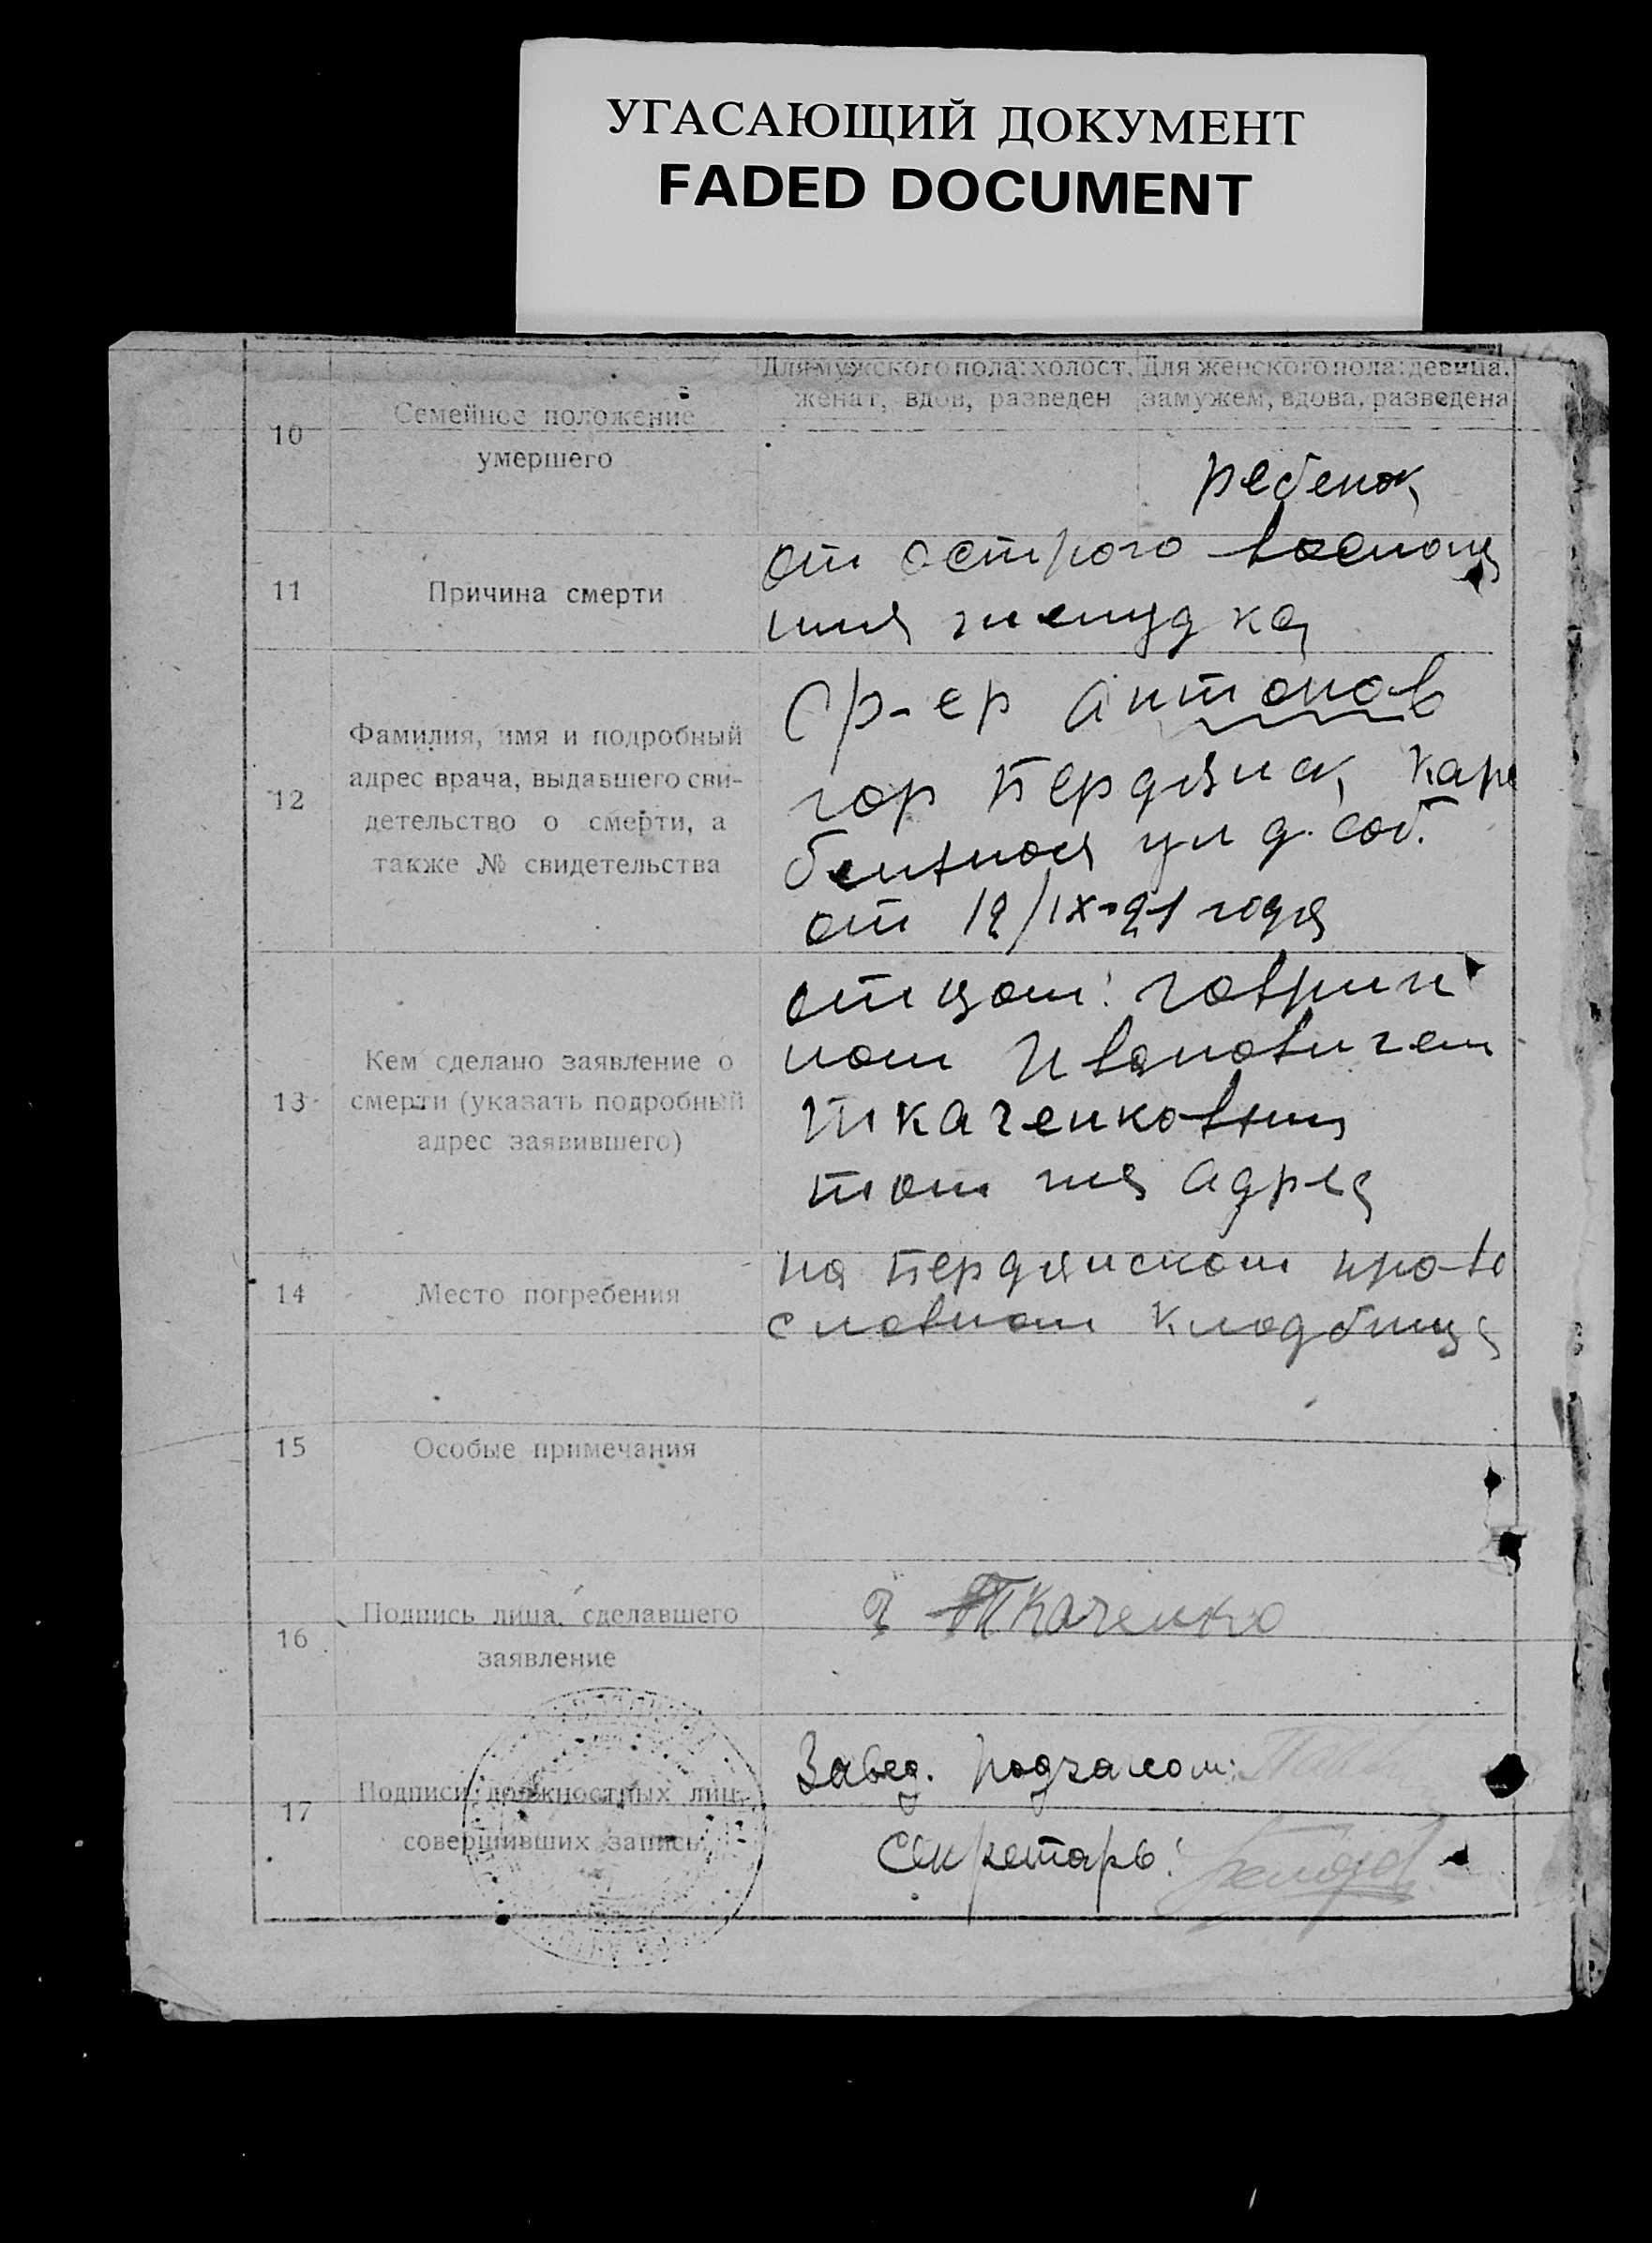 УГАСАЮЩИЙ ДОКУМЕНТ
FADED DOCUMENT
10
Семейное положение
умершего
Для мужского пола: холост,
женат, вдов, разведен
Для женского пола: девица,
замужем, вдова, разведена
ребенок
11
Причина смерти
от острого воспале
ния желудка
12
Фамилия, имя и подробный
адрес врача, выдавшего сви-
детельство о смерти, а
также № свидетельства
Антонов
гор Бердянск
ул д. соб.
от 12/IX-21 года
13
Кем сделано заявление о
смерти (указать подробный
адрес заявившего)
отцом: Гаврии
лом Ивановичем
Ткаченковым
тот же адрес
14
Место погребения
на Бердянском право
славном кладбище
15
Особые примечания
16
Подпись лица, сделавшего
заявление
Г Ткаченко
17
Подписи должностных лиц,
совершивших запись
Завед. Подзагсом:
Секретарь: